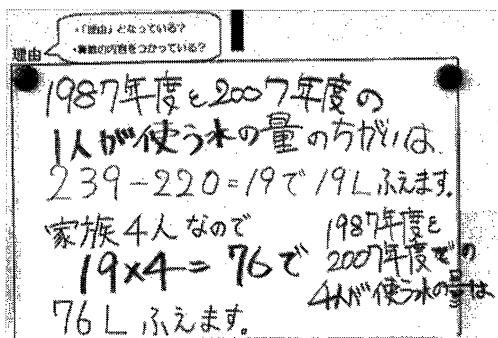 ・「理由」となっている?
・算数の内容をつかっている?
理由
1987年度と2007年度の
1人が使う水の量のちがいは、
239-220=19で19Lふえます。
家族4人なので
19×4=76で
76Lふえます。
1987年度と
2007年度での
4人が使う水の量は、